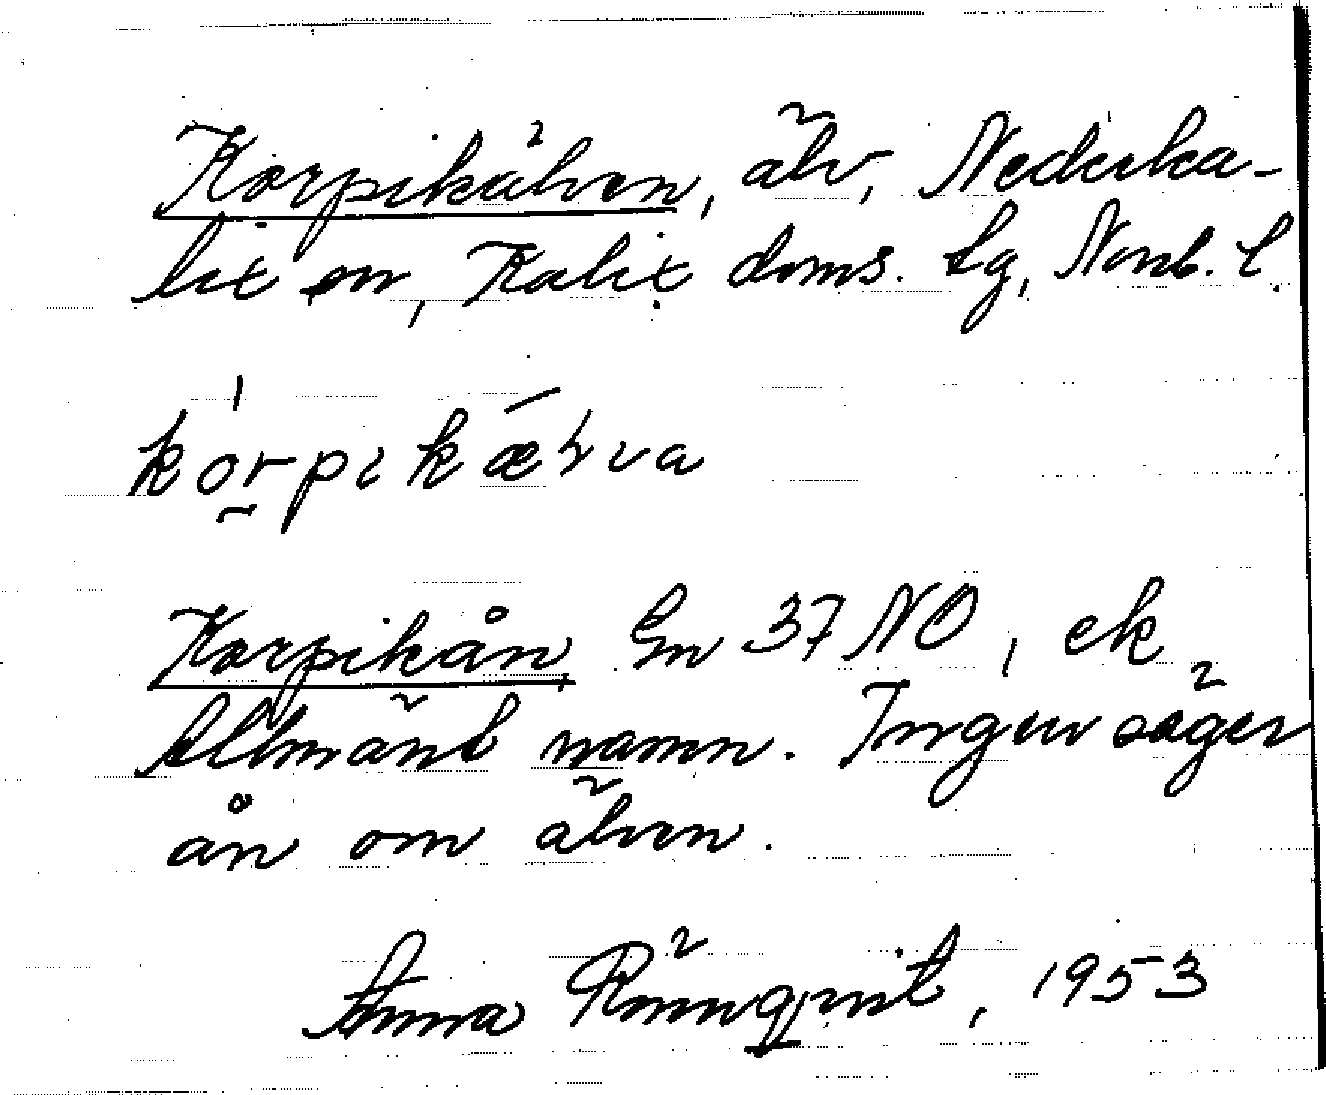 Korpikälven, älv, Nederka-
lix sn, Kalix doms. tg, Norrb. l.
kórpikǽlva
Korpikån Gn 37 NO, ek
Allmänt namn. Ingen säger
ån om älven.
Anna Rönnqvist, 1953